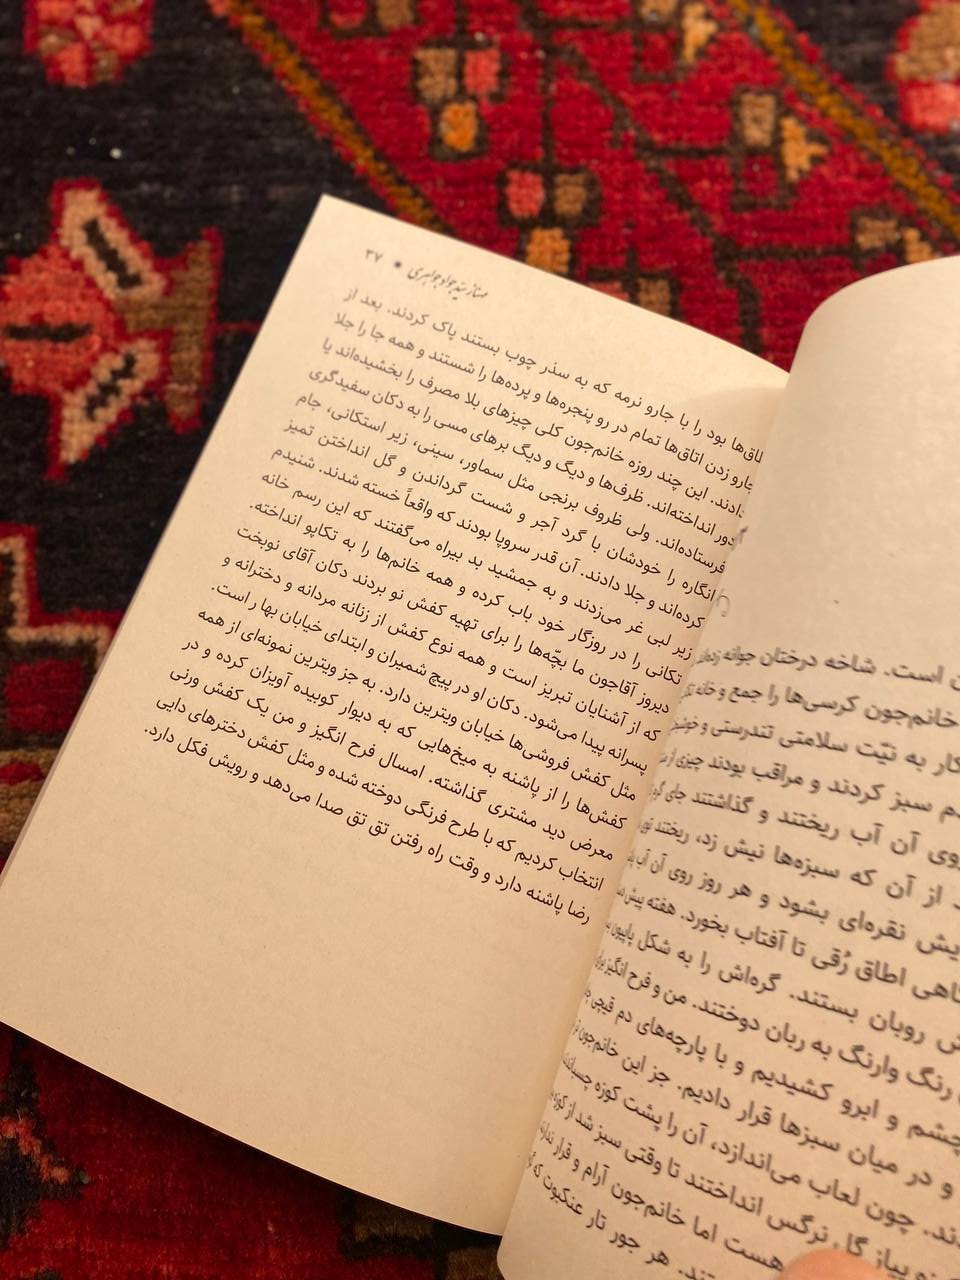 مهناز سیّد جواد جواهری * ۳۷
اطاق‌ها بود را با جارو نرمه که به سذر چوب بستند پاک کردند. بعد از
جارو زدن اتاق‌ها تمام در رو پنجره‌ها و پرده‌ها را شستند و همه جا را جلا
دادند. این چند روزه خانم‌جون کلی چیزهای بلا مصرف را بخشیده‌اند یا
دور انداخته‌اند. ظرف‌ها و دیگ و دیگ برهای مسی را به دکان سفیدگری
فرستاده‌اند. ولی ظروف برنجی مثل سماور، سینی، زیر استکانی، جام
انگاره را خودشان با گرد آجر و شست گرداندن و گل انداختن تمیز
کرده‌اند و جلا دادند. آن قدر سروپا بودند که واقعاً خسته شدند. شنیدم
زیر لبی غر می‌زدند و به جمشید بد بیراه می‌گفتند که این رسم خانه
تکانی را در روزگار خود باب کرده و همه خانم‌ها را به تکاپو انداخته.
دیروز آقاجون ما بچّه‌ها را برای تهیه کفش نو بردند دکان آقای نوبخت
که از آشنایان تبریز است و همه نوع کفش از زنانه مردانه و دخترانه و
پسرانه پیدا می‌شود. دکان او در پیچ شمیران و ابتدای خیابان بهار است.
مثل کفش فروشی‌ها خیابان ویترین دارد. به جز ویترین نمونه‌ای از همه
کفش‌ها را از پاشنه به میخ‌هایی که به دیوار کوبیده آویزان کرده و در
معرض دید مشتری گذاشته. امسال فرح انگیز و من یک کفش ورنی
انتخاب کردیم که با طرح فرنگی دوخته شده و مثل کفش دخترهای دایی
رضا پاشنه دارد و وقت راه رفتن تق تق صدا می‌دهد و رویش فکل دارد.
است. شاخه درختان جوانه زده‌اند
خانم‌جون کرسی‌ها را جمع و خانه
کار به نیّت سلامتی تندرستی و
سبز کردند و مراقب بودند چیزی از
روی آن آب ریختند و گذاشتند جای
از آن که سبزه‌ها نیش زد، ریختند
نقره‌ای بشود و هر روز روی آن آب
اطاق رُقی تا آفتاب بخورد. هفته پیش
روبان بستند. گره‌اش را به شکل پاپیون
رنگ وارنگ به ربان دوختند. من و فرح انگیز
چشم و ابرو کشیدیم و با پارچه‌های دم قیچی
و در میان سبزها قرار دادیم. جز این خانم‌جون
چون لعاب می‌اندازد، آن را پشت کوزه
پیاز گل نرگس انداختند تا وقتی سبز شد از
هست اما خانم‌جون آرام و قرار
هر جور تار عنکبوت که